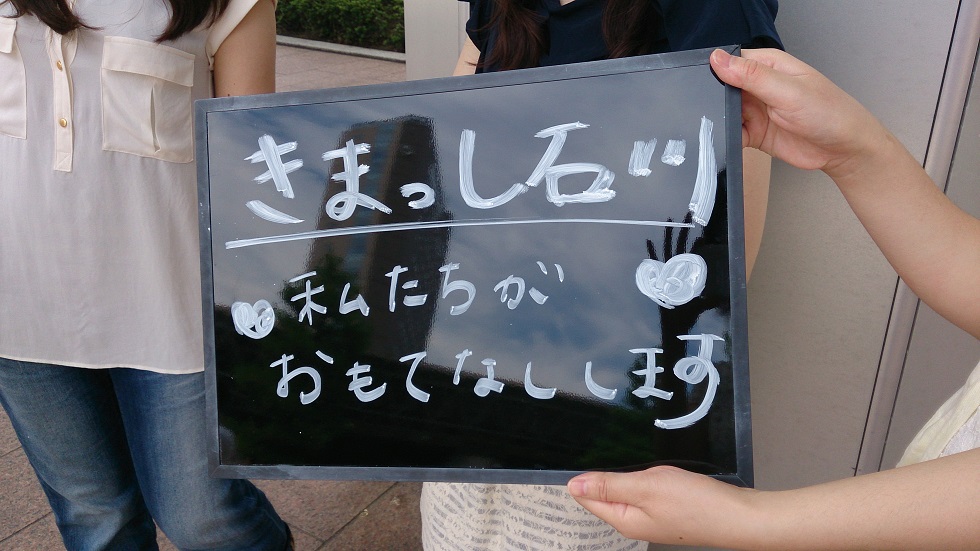 きまっし石川
私たちが
おもてなしします